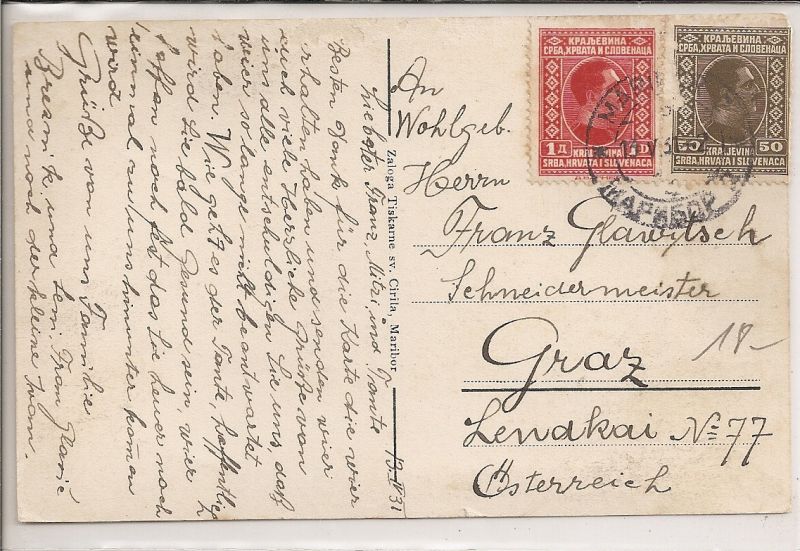 13.IV 31
Liebster Franz, Mitzi, und Tante
Besten Dank für die Karte die wier
erhalten haben und senden wier
euch viele Herzliche Grüße von
uns alle entschuldigen Sie uns, daß
wier so lange nicht beantwortet
haben. Wie geht es der Tante, hoffentlich
wird Sie bald Gesund sein, wier
hoffen noch fest das Sie heuer noch
einmal zu uns hinunter komen
wird.
Grüße von uns Familie
und Fam. Franz
und noch der kleine Ivan.
Zaloga Tiskarne sv. Cirila, Maribor
КРАЉЕВИНА
СРБА, ХРВАТА И СЛОВЕНАЦА
1 Д
KRALJEVINA
SRBA, HRVATA I SLOVENACA
КРАЉЕВИНА
СРБА, ХРВАТА И СЛОВЕНАЦА
50 50
KRALJEVINA
SRBA, HRVATA I SLOVENACA
МАРИБОР
An
Wohlgeb.
Herrn
Franz Glawitsch
Schneidermeister
Graz
18-
Lendkai No 77
Österreich